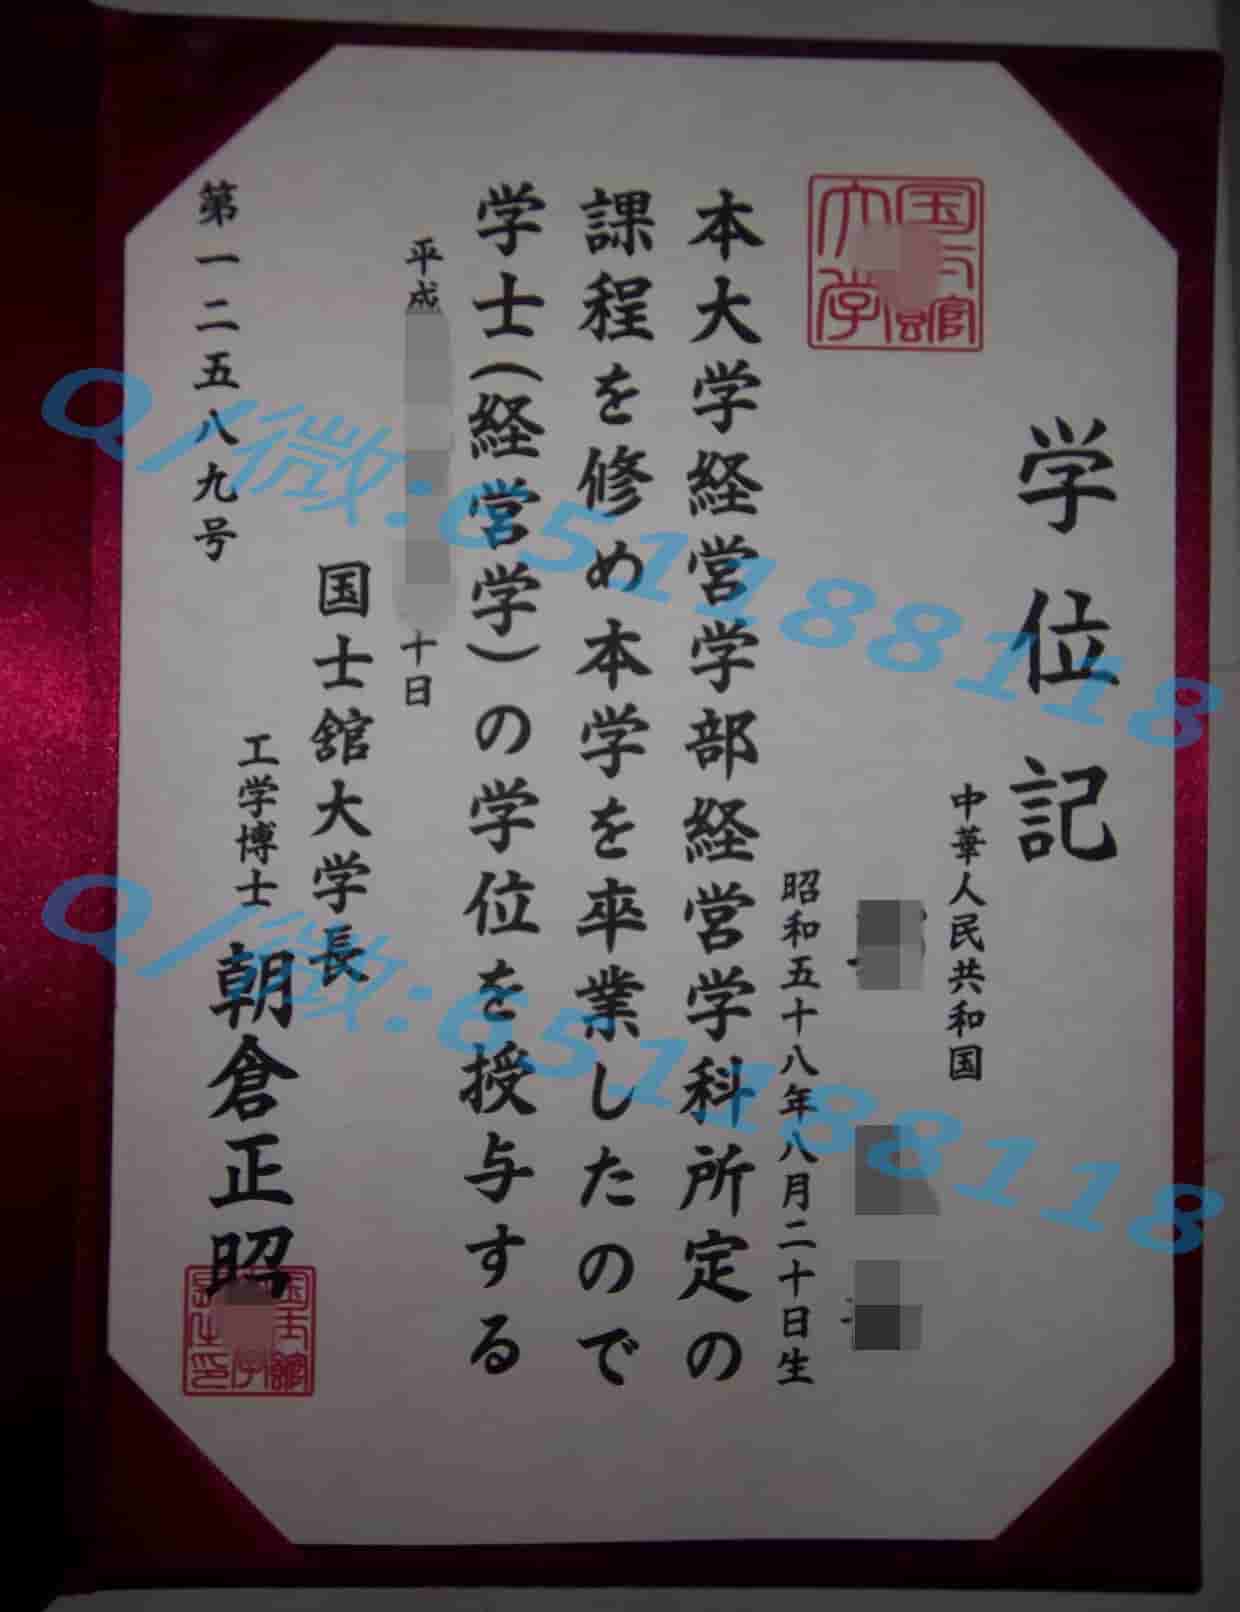 学位記
中華人民共和国
昭和五十八年八月二十日生
本大学経営学部経営学科所定の
課程を修め本学を卒業したので
学士(経営学)の学位を授与する
平成
十日
国士舘大学長
工学博士 朝倉正昭
第一二五八九号
Q/微:651188118
Q/微:651188118